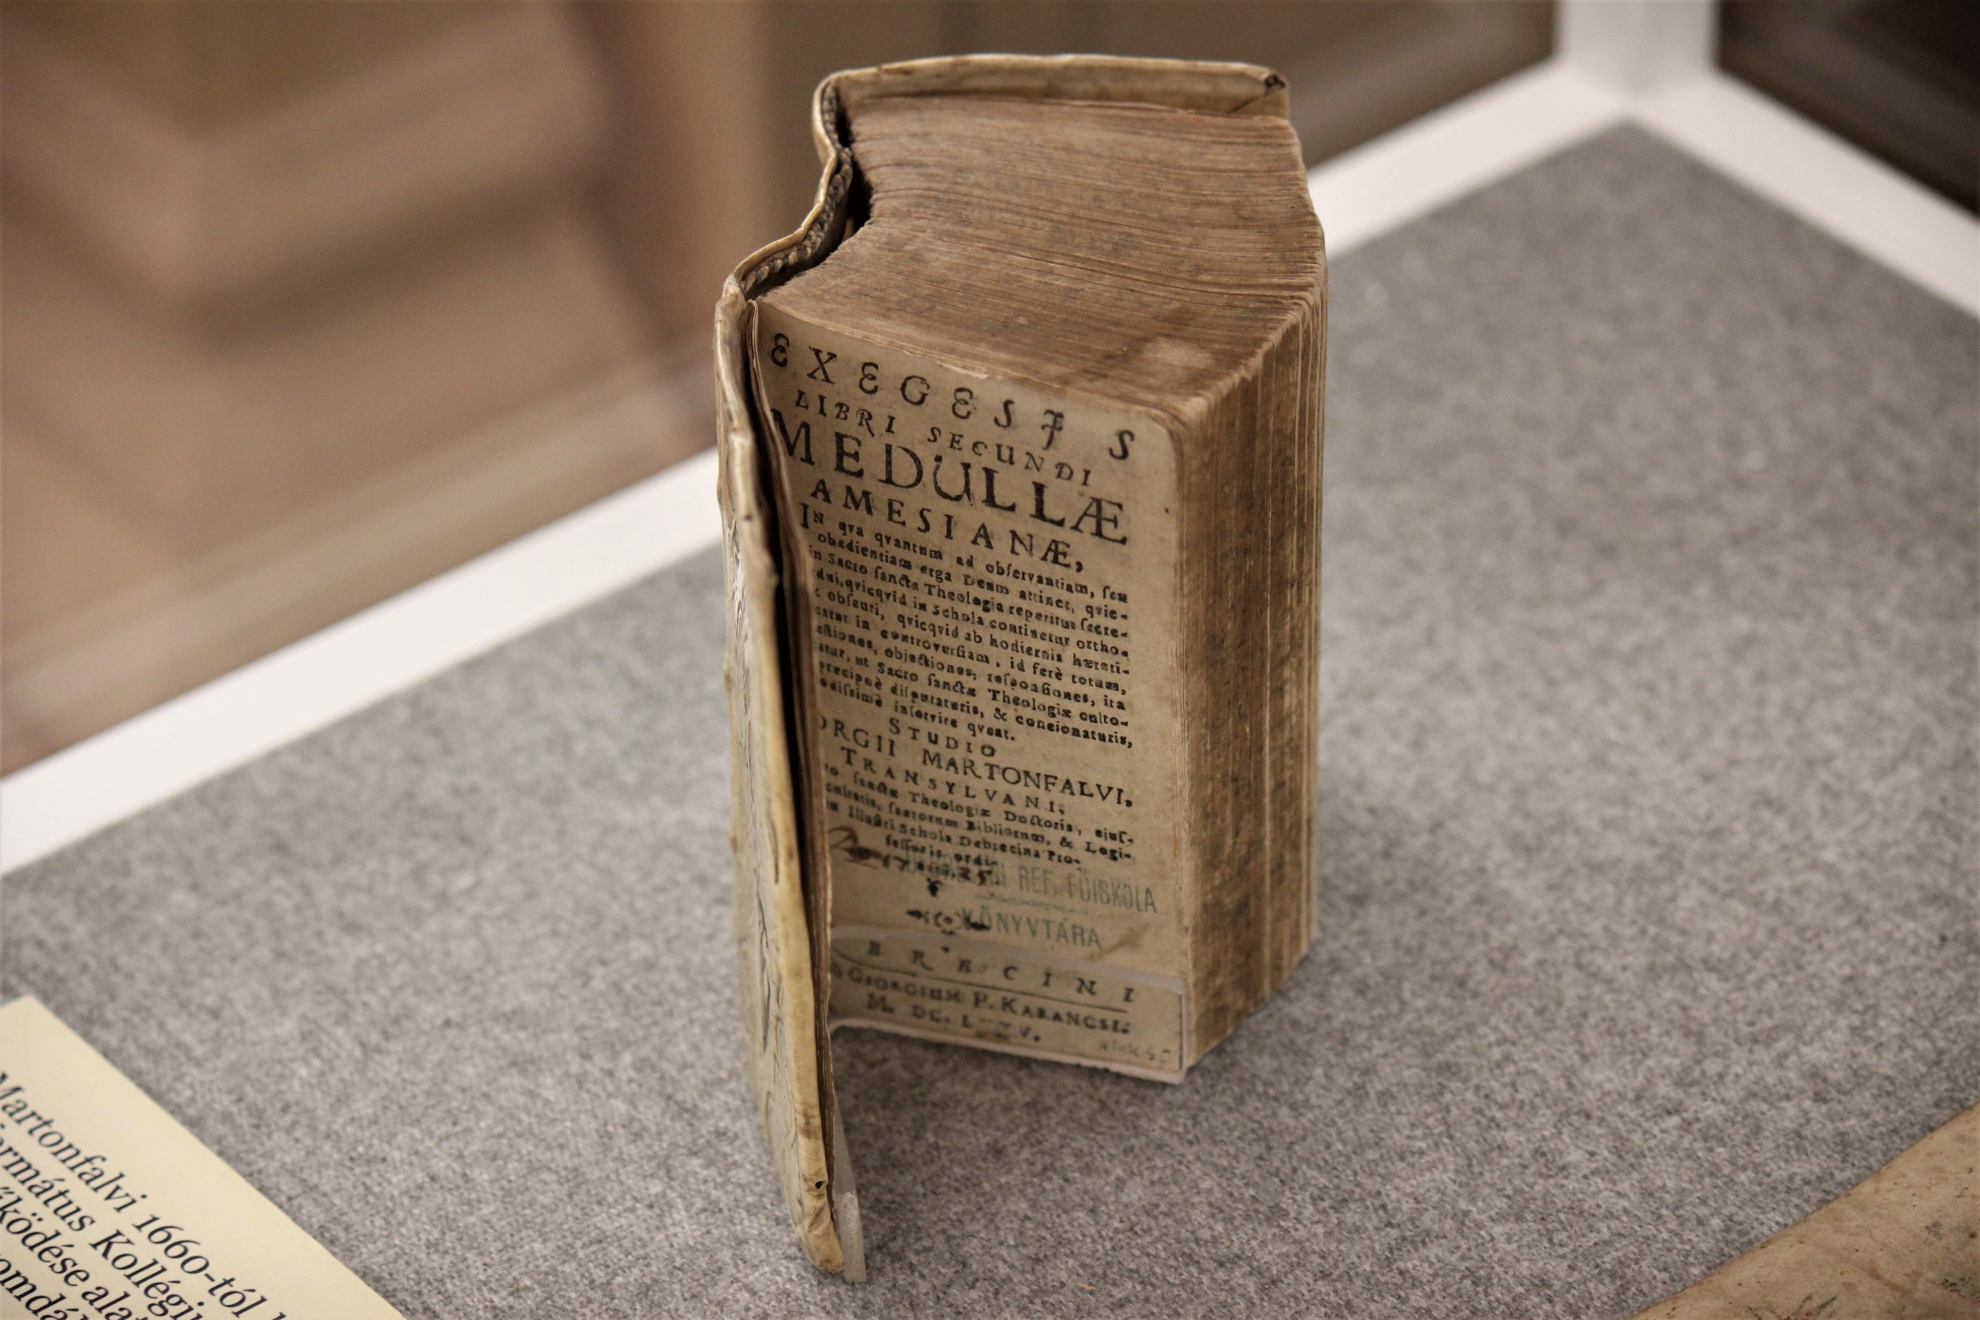 EXEGESIS
LIBRI SECUNDI
MEDULLÆ
AMESIANÆ,
IN qva qvantum ad obſervantiam, ſeu
obedientiam erga Deum attinet, qvic-
in Sacro ſanctæ Theologia reperitur ſecre-
qvicqvid in Schola continetur ortho-
obſcuri, qvicqvid ab hodiernis hæreti-
in controverſiam, id ferè totum,
objectiones, reſponſiones, ita
ut Sacro ſanctæ Theologiæ culto-
præcipuè diſputaturis, & concionaturis,
inſervire qveat.
STUDIO
ORGII MARTONFALVI,
TRANSYLVANI,
ſanctæ Theologiæ Doctoris, ejuſ-
ſanctorum Bibliorum, & Logi-
in Illuſtri Schola Debrecina Pro-
feſſoris ordi-
REF. FŐISKOLA
KÖNYVTÁRA
BRECINI
GEORGIUM P. KARANCSI.
M. DC. L
Martonfalvi 1660-tól
ormátus Kollégi
ködése alat
omdá